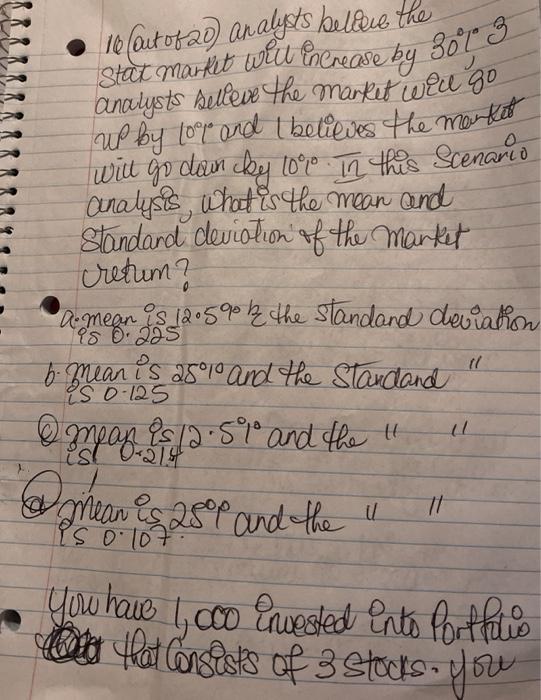 16 (out of 20) analysts believe the
Stat market will increase by 30% 3
analysts believe the market will go
up by 10% and 1 believes the market
will go down by 10%. In this Scenario
analysis, what is the mean and
Standard deviation of the market
return?
a. mean is 12.5% & the standard deviation
is 0.225
b. mean is 25% and the Standard "
is 0.125
c mean is 12.5% and the " "
is 0.214
d mean is 25% and the " "
is 0.107.
You have 1,000 invested into Portfolio
that Consists of 3 Stocks. you